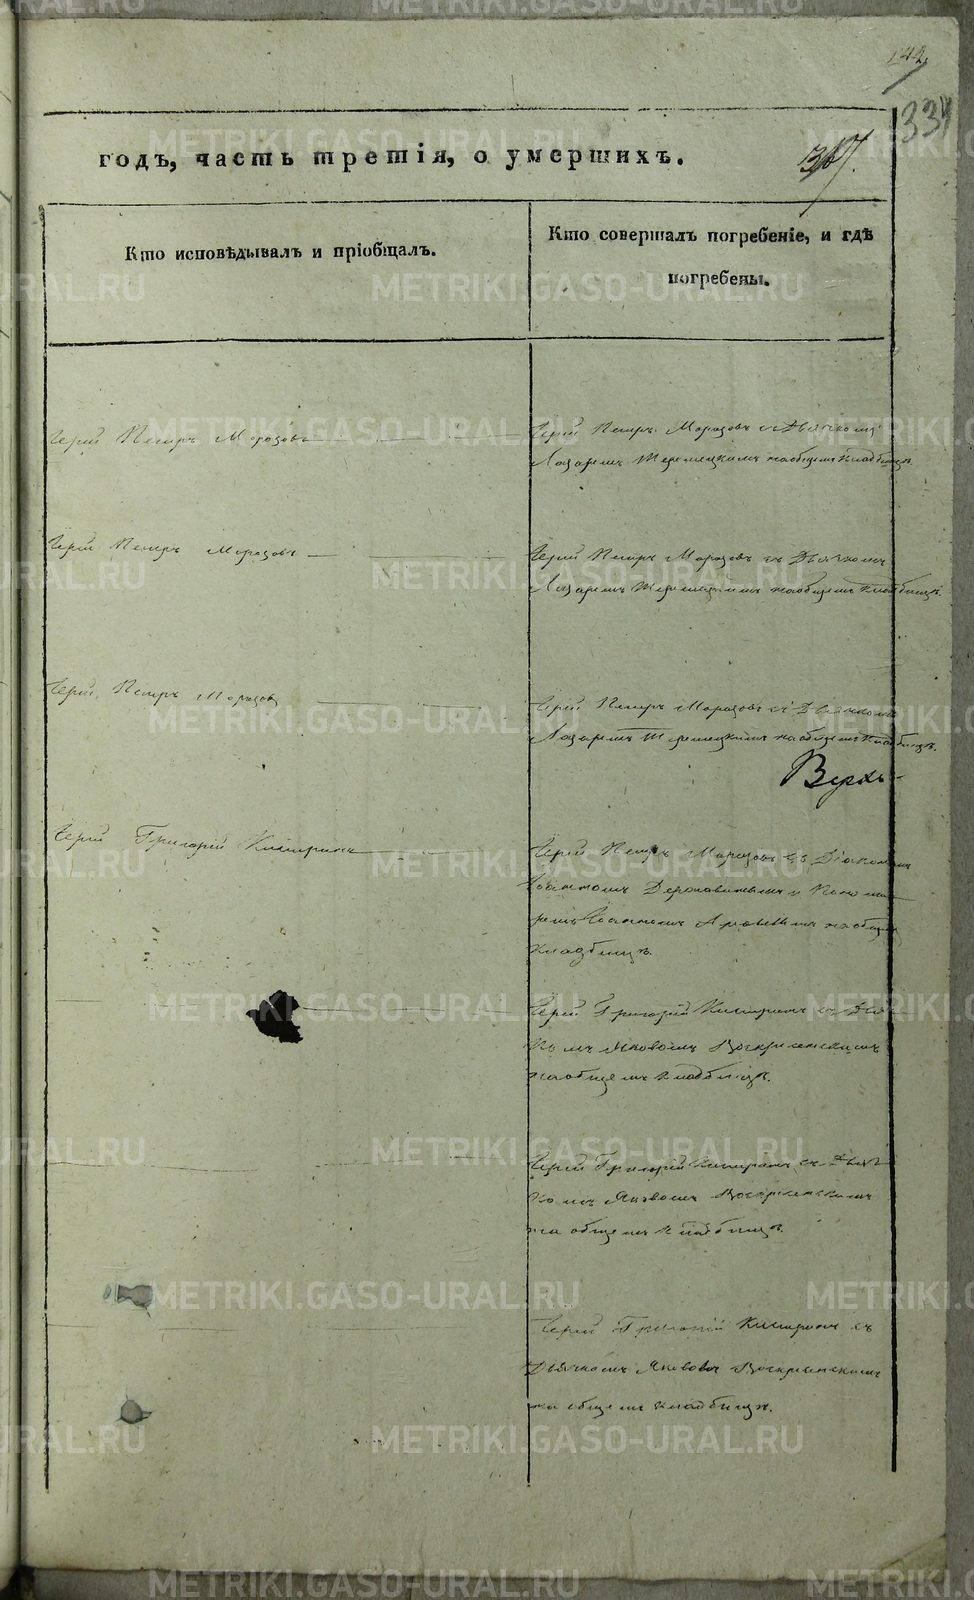 142
334
годъ, часть третія, о умершихъ.
367.
Кто исповѣдывалъ и пріобщалъ.
Кто совершалъ погребеніе, и гдѣ
погребены.
Іерей Петръ Морозовъ
Іерей Петръ Морозовъ съ Дьячкомъ
Лазаремъ наобщемъ кладбищѣ.
Іерей Петръ Морозовъ
Іерей Петръ Морозовъ съ Дьячкомъ
Лазаремъ наобщемъ кладбищѣ.
Іерей Петръ Морозовъ
Іерей Петръ Морозовъ съ Дьячкомъ
Лазаремъ наобщемъ кладбищѣ.
Верхъ-
Іерей Григорій Кипріянъ
Іерей Петръ Морозовъ съ Діакономъ
Іоанномъ и Поно
ремъ Іоанномъ наобщемъ
кладбищѣ.
Іерей Григорій съ Дьяч
комъ Яковомъ Воскресенскимъ
наобщемъ кладбищѣ.
Іерей Григорій съ Дьяч
комъ Яковомъ Воскресенскимъ
на общемъ кладбищѣ.
Іерей Григорій съ
Дьячкомъ Яковомъ Воскресенскимъ
на общемъ кладбищѣ.
METRIKI.GASO-URAL.RU